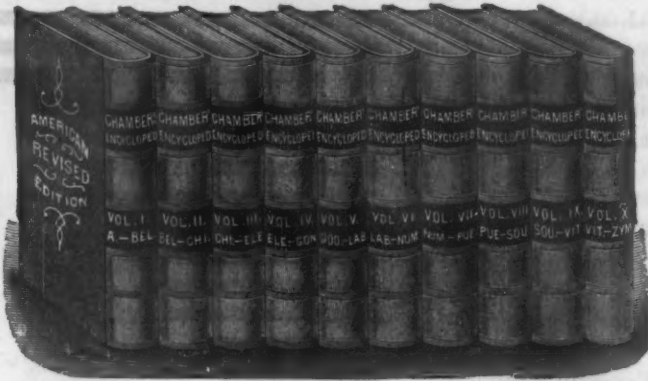 AMERICAN
REVISED
EDITION
CHAMBER'
ENCYCLOPED
VOL. I.
A.-BEL
CHAMBER'
ENCYCLOPED
VOL. II.
BEL-CHI.
CHAMBER'
ENCYCLOPED
VOL. III.
CHI-ELE
CHAMBER'
ENCYCLOPE
VOL. IV.
ELE-GON
CHAMBER'
ENCYCLOPE
VOL. V.
GOO.-LAB
CHAMBER'
ENCYCLOPED
VOL. VI
LAB-NUM
CHAMBER'
ENCYCLOPED
VOL. VII.
NUM-PUE
CHAMBER'
ENCYCLOPED
VOL. VIII
PUE-SOU
CHAMBER'
ENCYCLOPED
VOL. IX
SOU.-VIT
CHAMBE
ENCYCLOPE
VOL. X
VIT.-ZYM